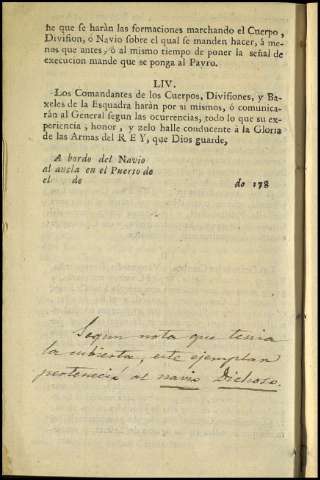 he que se haràn las formaciones marchando el Cuerpo,
Division, ó Navio sobre el qual se manden hacer, á me-
nos que antes, ò al mismo tiempo de poner la señal de
execucion mande que se ponga al Payro.
LIV.
Los Comandantes de los Cuerpos, Divisiones, y Ba-
xeles de la Esquadra harán por si mismos, ó comunica-
rán al General segun las ocurrencias, todo lo que su ex-
periencia, honor, y zelo halle conducente á la Gloria
de las Armas del REY, que Dios guarde,
A bordo del Navio
al ancla en el Puerto de
el de de 178
Segun nota que tenia
la cubierta, este ejemplar
perteneció al navio Dichoso.